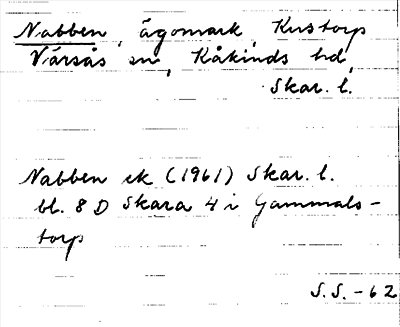 Nabben, ägomark, Krustorp
Vårsås sn, Kåkinds hd,
Skar. l.
Nabben ek (1961) Skar. l.
bl. 8 D Skara 4 i Gammals-
torp
S.S. -62